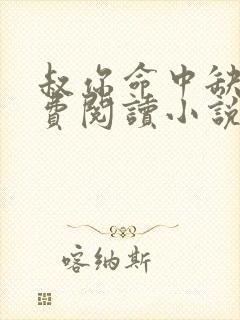 叔你命中缺
費閱讀小說
喀納斯